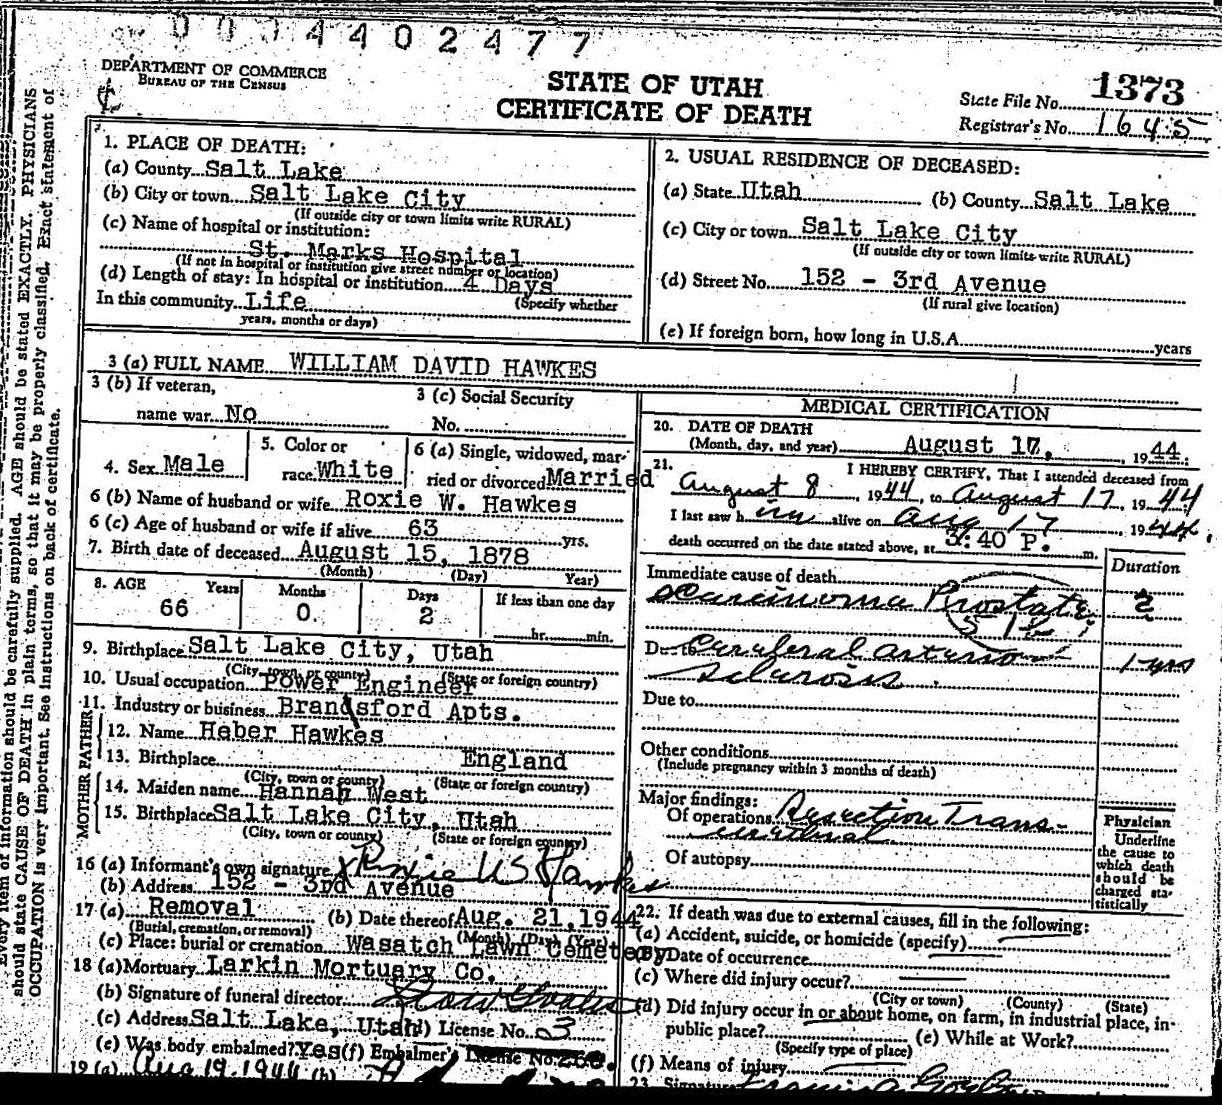 0034402477
DEPARTMENT OF COMMERCE
BUREAU OF THE CENSUS
STATE OF UTAH
CERTIFICATE OF DEATH
State File No. 1373
Registrar's No. 1645
1. PLACE OF DEATH:
(a) County Salt Lake
(b) City or town Salt Lake City
(If outside city or town limits write RURAL)
(c) Name of hospital or institution:
St. Marks Hospital
(If not in hospital or institution give street number or location)
(d) Length of stay: In hospital or institution 4 Days
(Specify whether
In this community Life
years, months or days)
2. USUAL RESIDENCE OF DECEASED:
(a) State Utah (b) County Salt Lake
(c) City or town Salt Lake City
(If outside city or town limits write RURAL)
(d) Street No. 152 - 3rd Avenue
(If rural give location)
(e) If foreign born, how long in U.S.A. years
3 (a) FULL NAME WILLIAM DAVID HAWKES
3 (b) If veteran,
name war No
3 (c) Social Security
No.
4. Sex Male
5. Color or
race White
6 (a) Single, widowed, mar-
ried or divorced Married
6 (b) Name of husband or wife Roxie W. Hawkes
6 (c) Age of husband or wife if alive 63 yrs.
7. Birth date of deceased August 15, 1878
(Month) (Day) Year)
8. AGE Years Months Days If less than one day
66 0 2 hr. min.
9. Birthplace Salt Lake City, Utah
(City, town or county) (State or foreign country)
10. Usual occupation Power Engineer
11. Industry or business Brandsford Apts.
FATHER
12. Name Heber Hawkes
13. Birthplace England
(City, town or county) (State or foreign country)
MOTHER
14. Maiden name Hannah West
15. Birthplace Salt Lake City, Utah
(City, town or county) (State or foreign country)
16 (a) Informant's own signature x Roxie W Hawkes
(b) Address 152 - 3rd Avenue
17 (a) Removal (b) Date thereof Aug. 21, 1944
(Burial, cremation, or removal) (Month) (Day) (Year)
(c) Place: burial or cremation Wasatch Lawn Cemetery
18 (a) Mortuary Larkin Mortuary Co.
(b) Signature of funeral director
(c) Address Salt Lake, Utah (d) License No. 3
(e) Was body embalmed? Yes (f) Embalmer's License No. 266.
19 (a) Aug 19, 1944 (b)
MEDICAL CERTIFICATION
20. DATE OF DEATH
(Month, day, and year) August 17, 1944.
21. I HEREBY CERTIFY, That I attended deceased from
August 8, 1944, to August 17, 1944
I last saw him alive on Aug 17 1944.
death occurred on the date stated above, at 3:40 P. m.
Duration
Immediate cause of death
Carcinoma Prostate 2
51
Due to Cerebral arterio 1 yrs
sclerosis.
Due to
Other conditions
(Include pregnancy within 3 months of death)
Major findings:
Of operations Resection Trans-
urethral
Of autopsy
Physician
Underline
the cause to
which death
should be
charged sta-
tistically
22. If death was due to external causes, fill in the following:
(a) Accident, suicide, or homicide (specify)
(b) Date of occurrence
(c) Where did injury occur?
(City or town) (County) (State)
(d) Did injury occur in or about home, on farm, in industrial place, in-
public place? (e) While at Work?
(Specify type of place)
(f) Means of injury
23. Signature
Every item of information should be carefully supplied. AGE should be stated EXACTLY. PHYSICIANS
should state CAUSE OF DEATH in plain terms, so that it may be properly classified. Exact statement of
OCCUPATION is very important. See instructions on back of certificate.